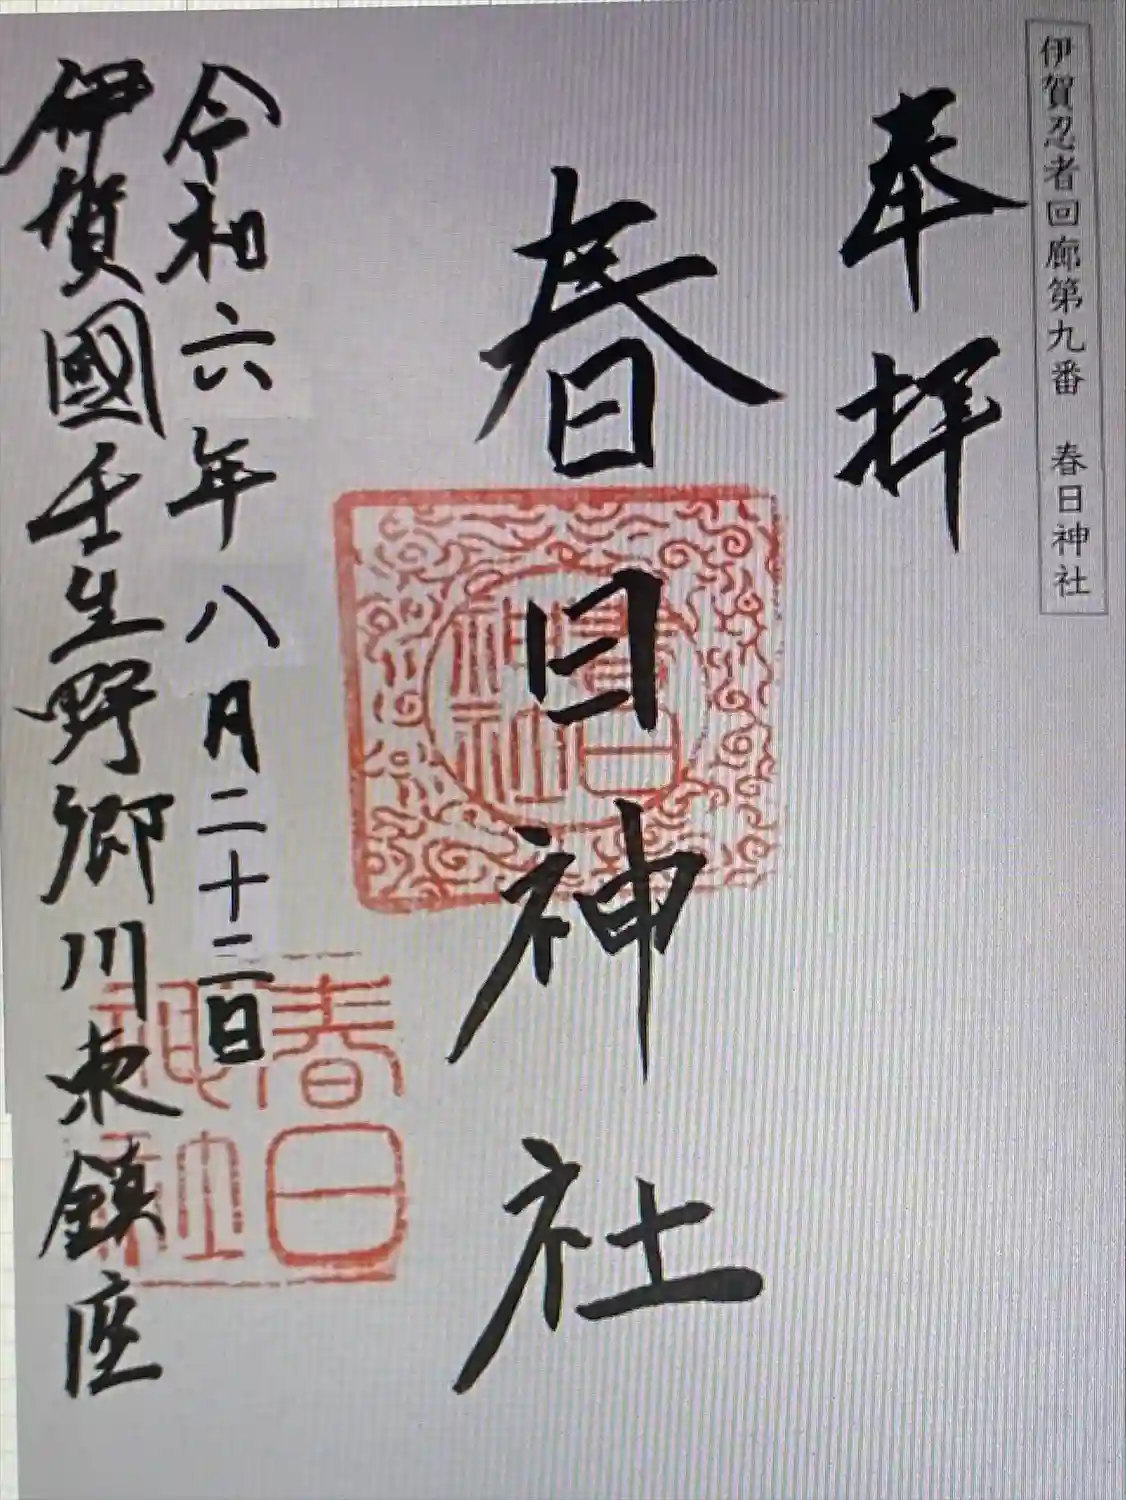 伊賀忍者回廊第九番　春日神社
奉拝
春日神社
春日神社
令和六年八月二十二日
春日神社
伊賀國壬生野郷川東鎮座